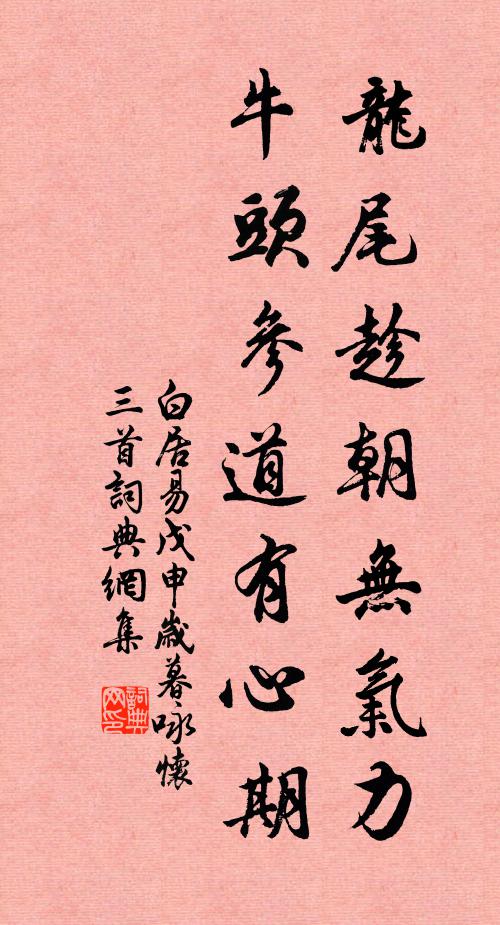 龍尾趁朝無氣力
牛頭參道有心期
白居易戊申歲暮咏懷
三首詞典網集
詞典網印